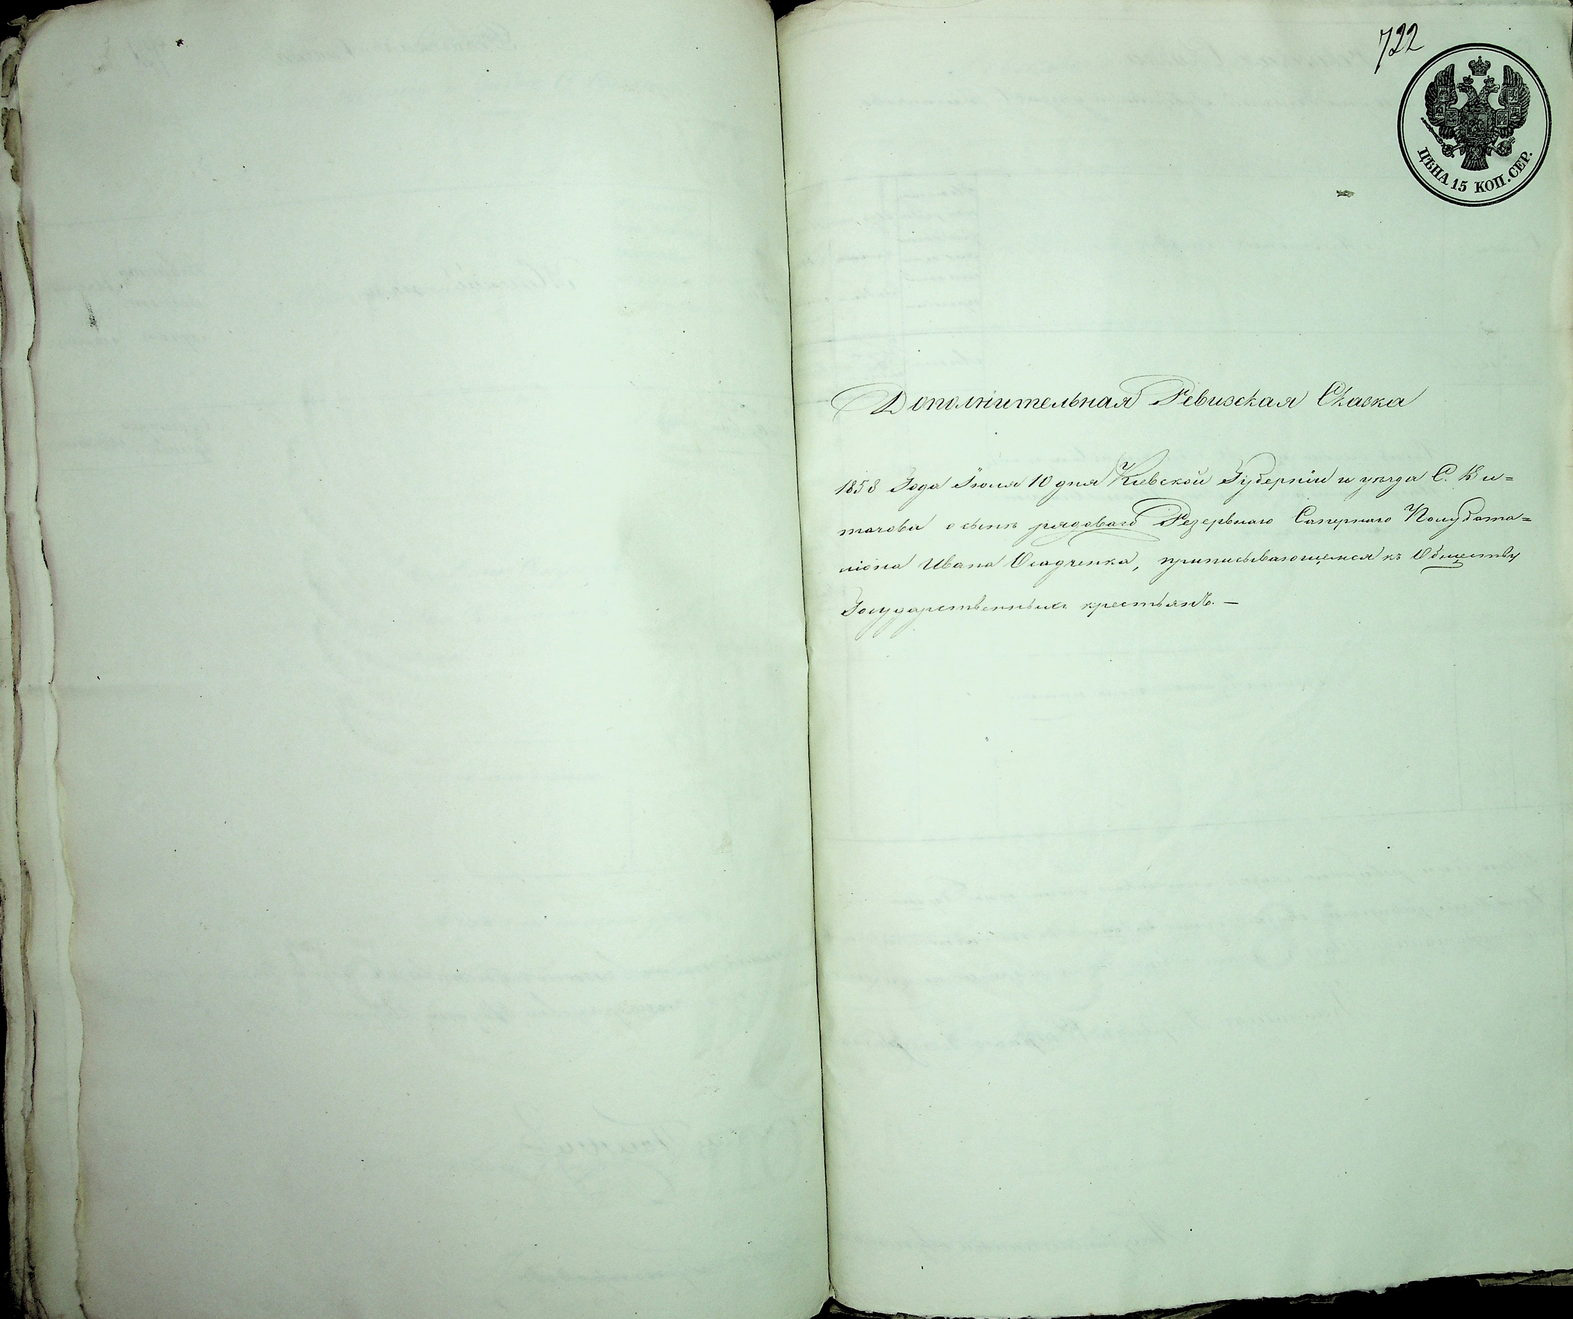 722
ЦѢНА 15 КОП. СЕР.
Дополнительная Ревизская Сказка
1858 Года Июля 10 дня Кіевской Губерніи и уѣзда С. Ви=
тачова о сынѣ рядоваго Резервнаго Сапернаго Полубата=
ліона Ивана Осадченка, приписывающемся къ Обществу
Государственныхъ крестьянъ. —